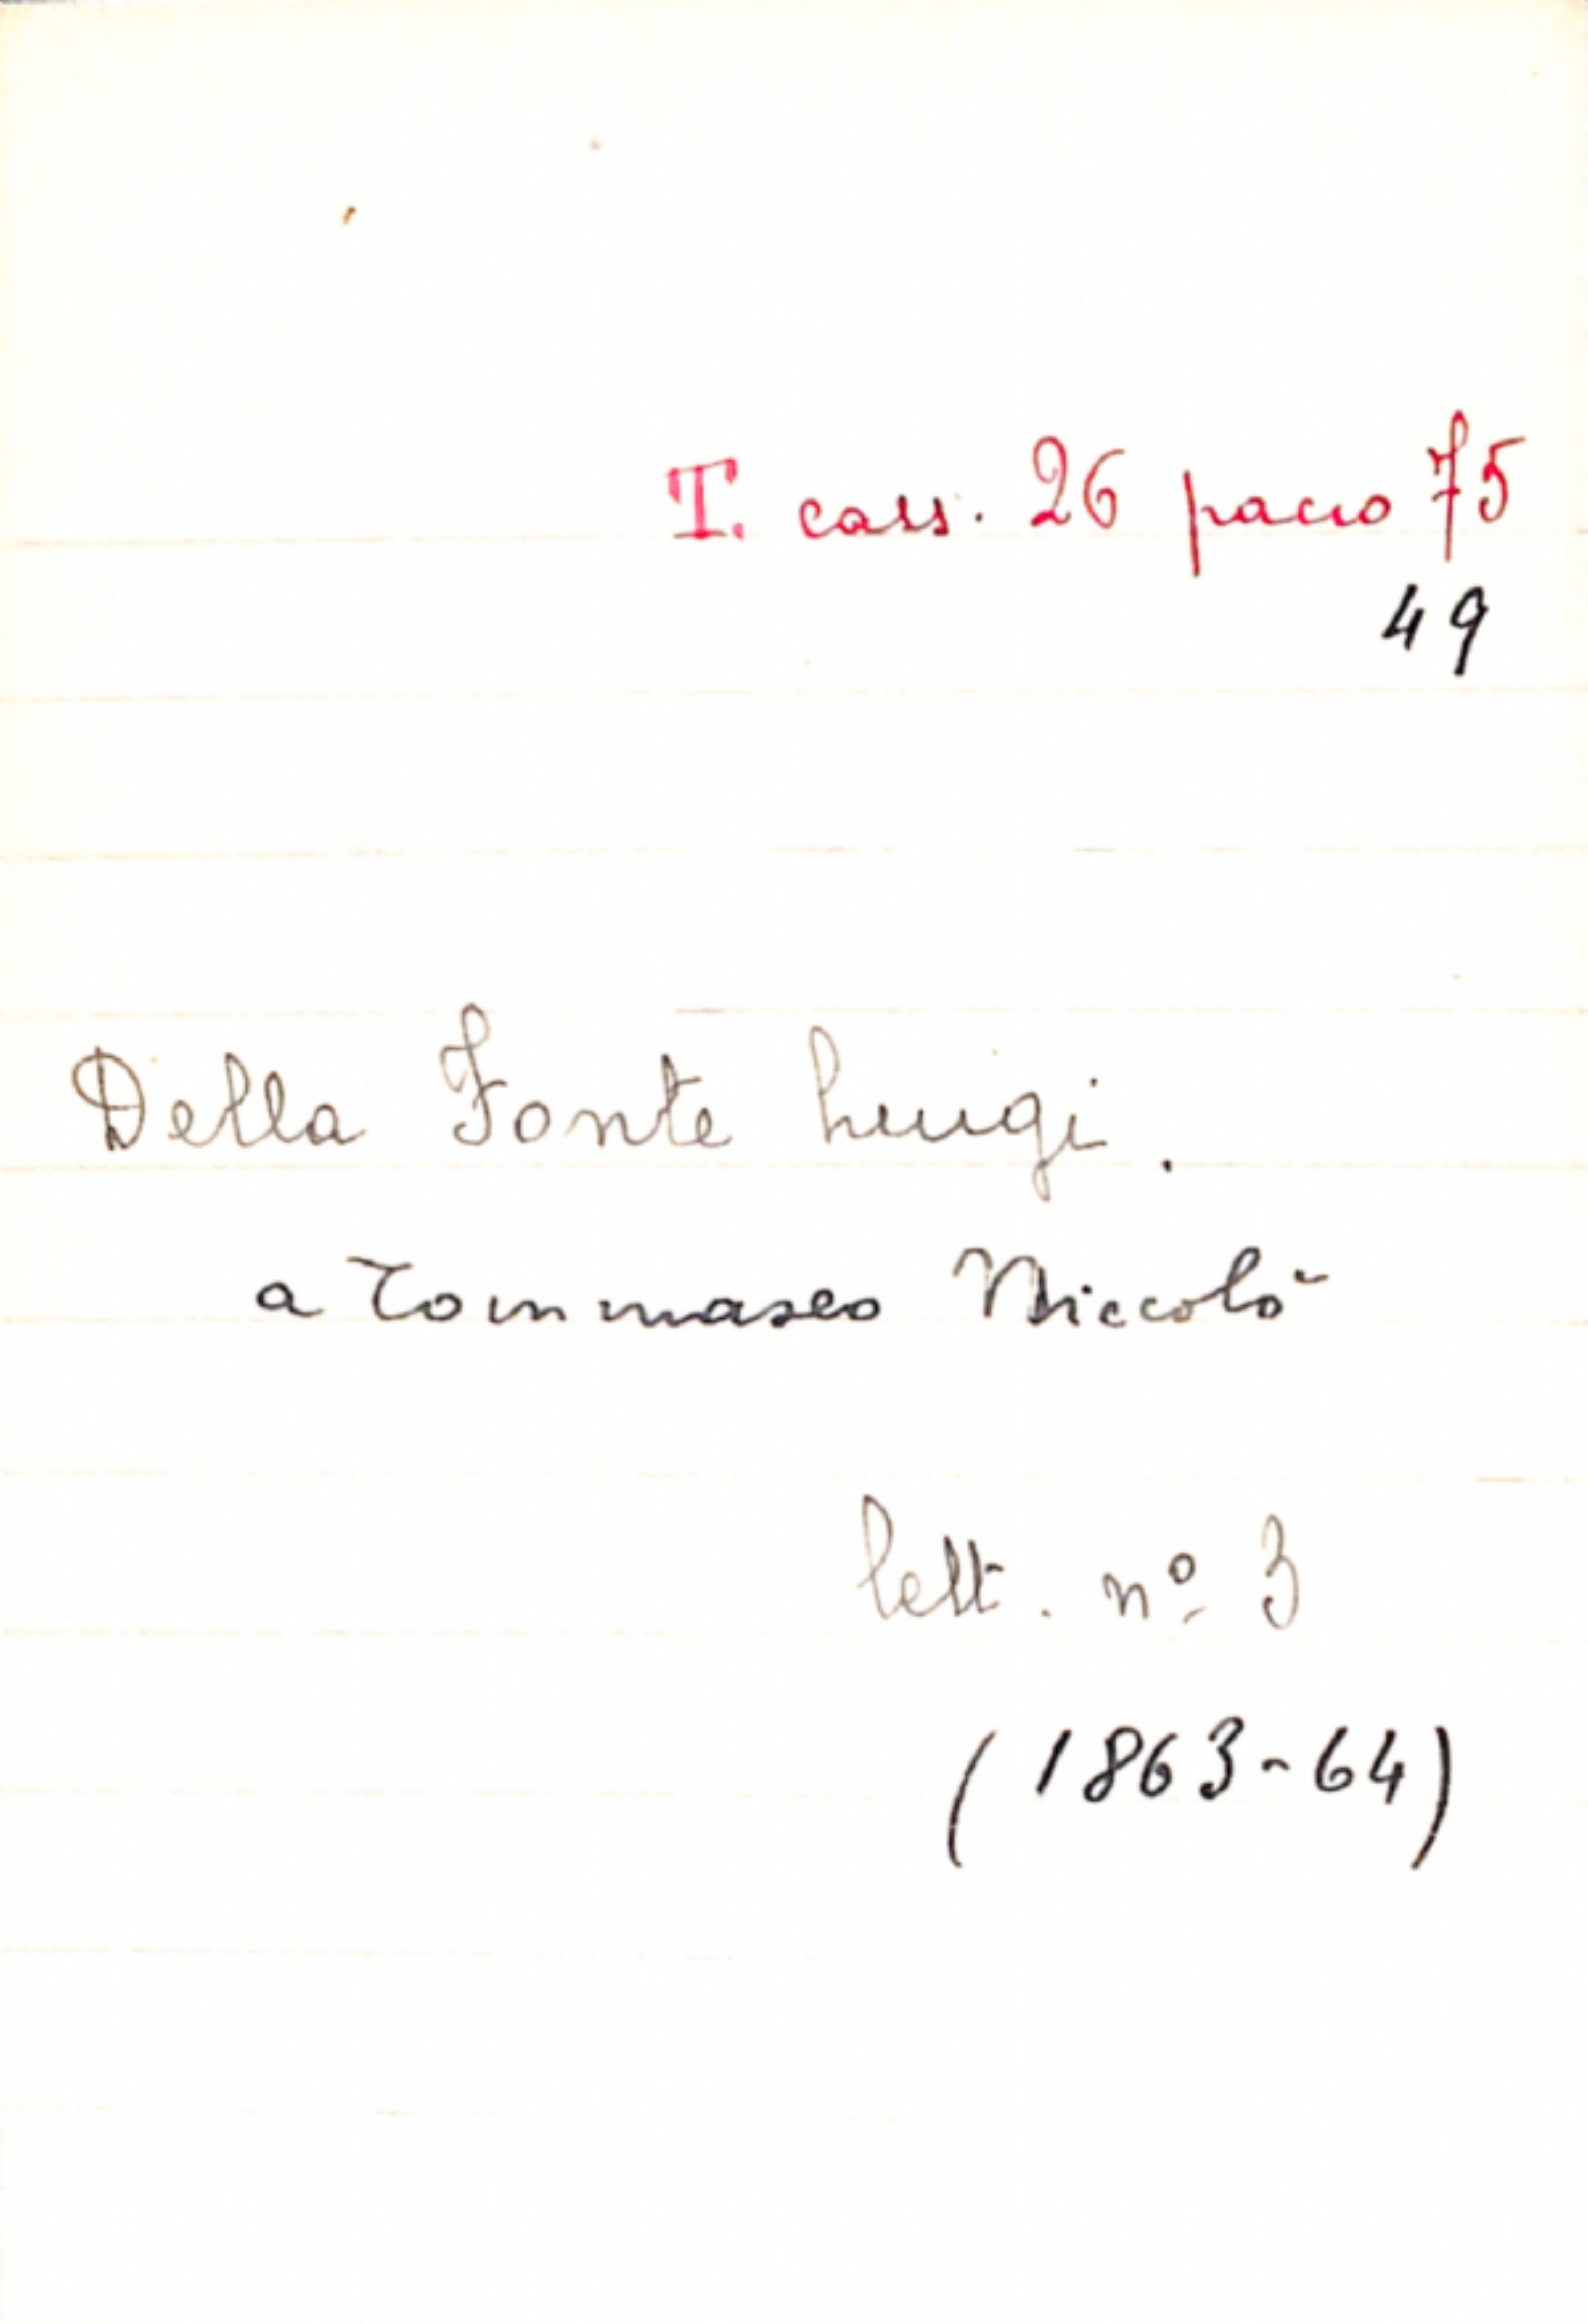 T. cass. 26 pacco 75
49
Della Fonte Luigi.
a Tommaseo Niccolò
lett. nº 3
(1863-64)